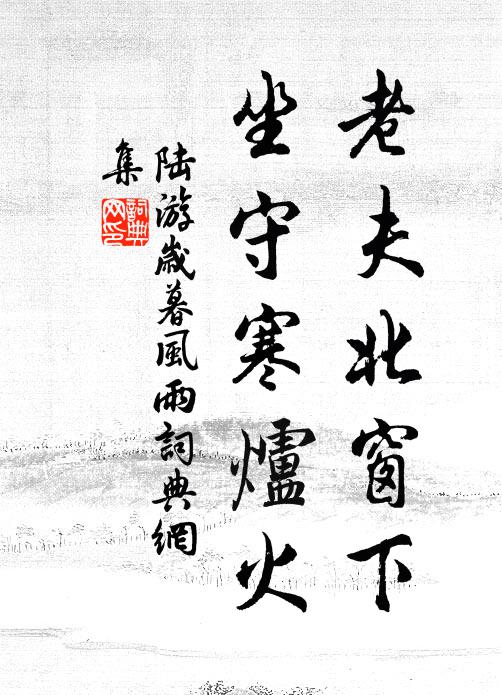 老夫北窗下
坐守寒爐火
陸游歲暮風雨詞典網
集
詞典
网印